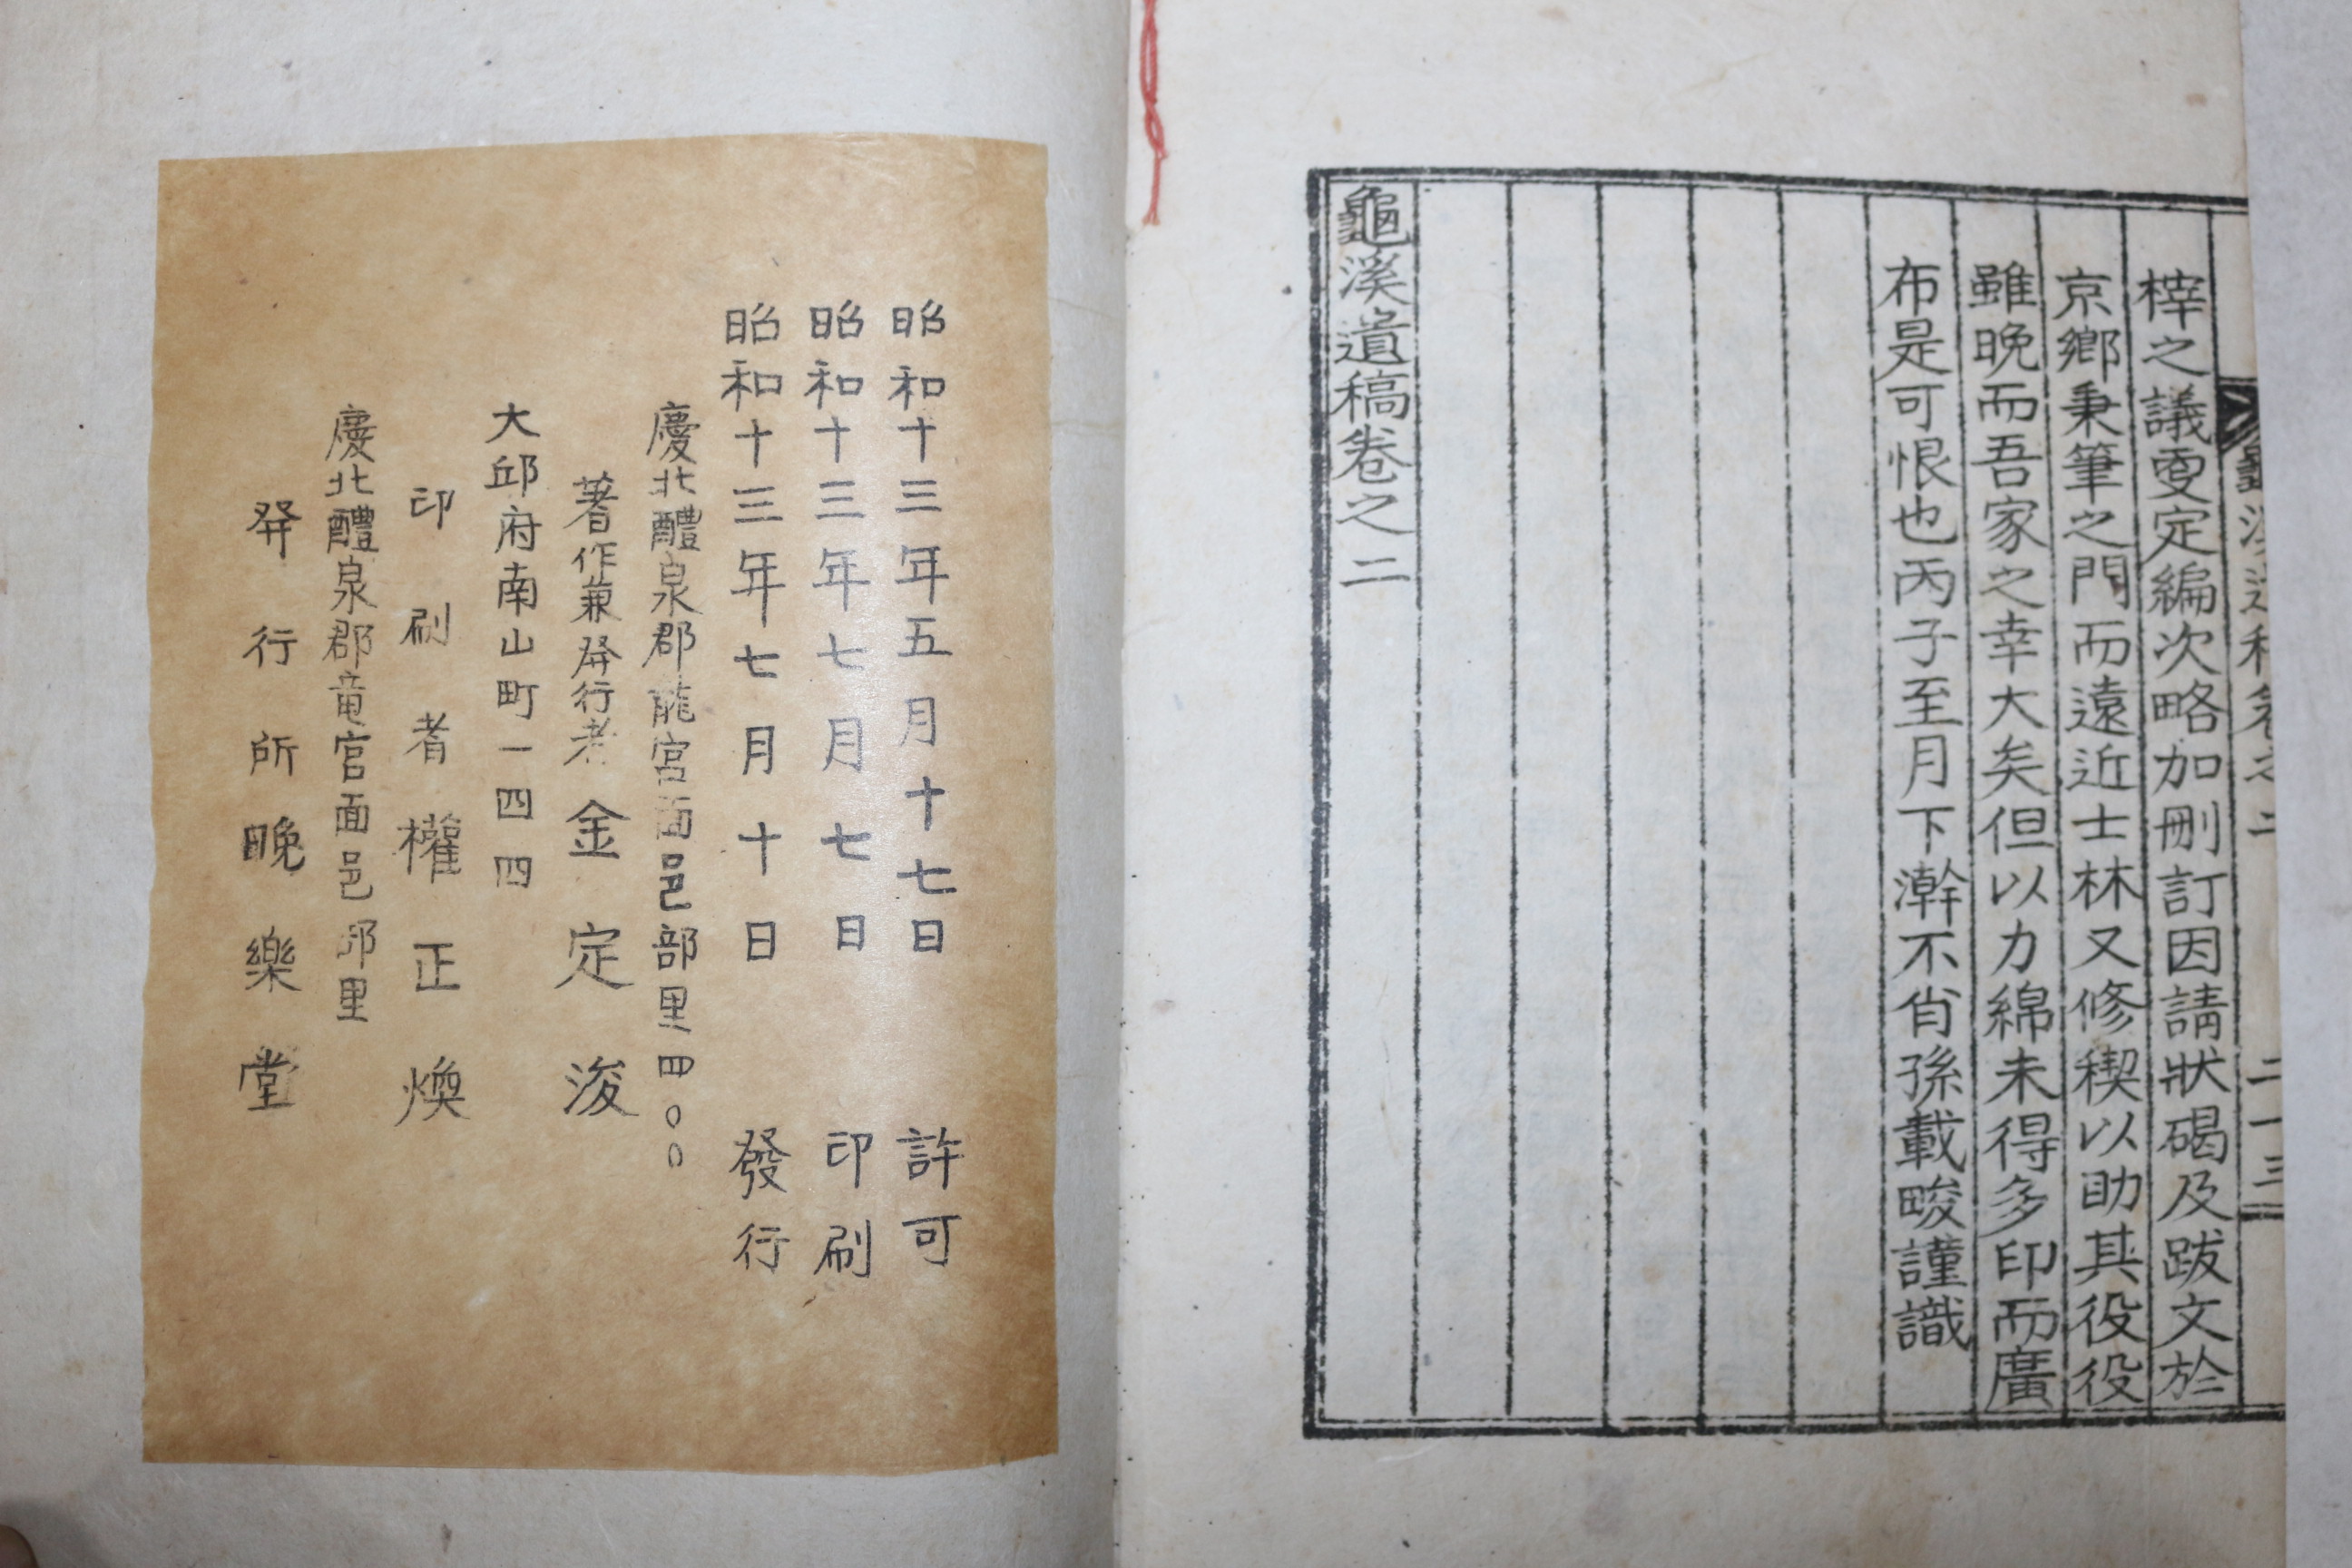 梓之議更定編次略加刪訂因請狀碣及跋文於
京鄉秉筆之門而遠近士林又修稧以助其役役
雖晚而吾家之幸大矣但以力綿未得多印而廣
布是可恨也丙子至月下澣不肖孫載畯謹識
龜溪遺稿卷之二
昭和十三年五月十七日 許可
昭和十三年七月七日 印刷
昭和十三年七月十日 發行
慶北醴泉郡龍宮面邑部里四〇〇
著作兼発行者 金定浚
大邱府南山町一四四
印刷者 權正煥
慶北醴泉郡竜宮面邑部里
発行所 晩樂堂